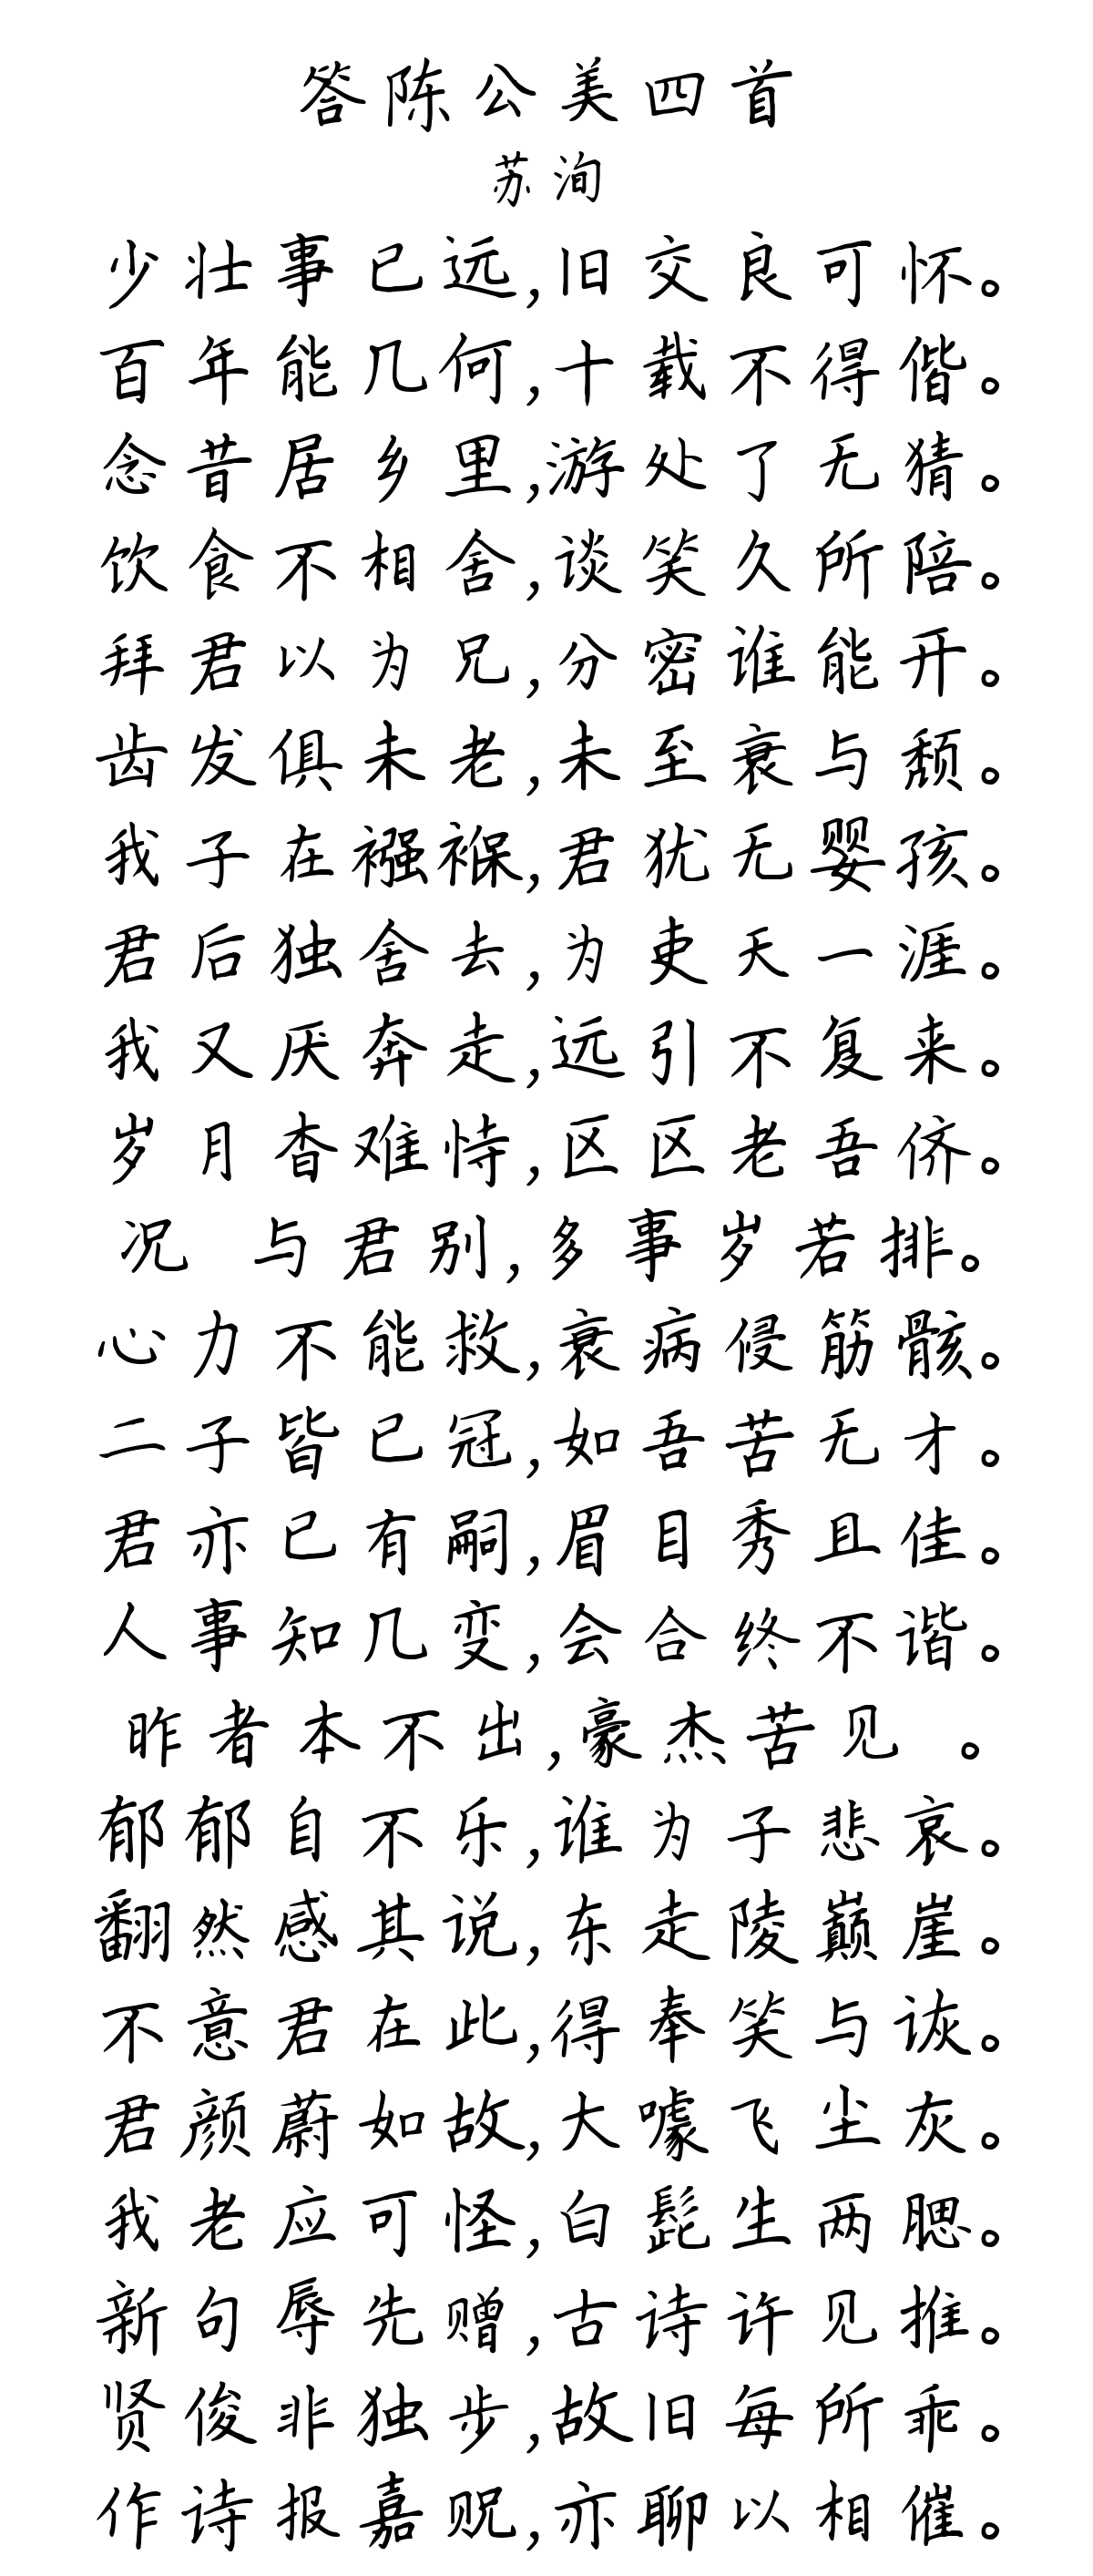 答陈公美四首
苏洵
少壮事已远,旧交良可怀。
百年能几何,十载不得偕。
念昔居乡里,游处了无猜。
饮食不相舍,谈笑久所陪。
拜君以为兄,分密谁能开。
齿发俱未老,未至衰与颓。
我子在襁褓,君犹无婴孩。
君后独舍去,为吏天一涯。
我又厌奔走,远引不复来。
岁月杳难恃,区区老吾侪。
况 与君别,多事岁若排。
心力不能救,衰病侵筋骸。
二子皆已冠,如吾苦无才。
君亦已有嗣,眉目秀且佳。
人事知几变,会合终不谐。
昨者本不出,豪杰苦见 。
郁郁自不乐,谁为子悲哀。
翻然感其说,东走陵巅崖。
不意君在此,得奉笑与诙。
君颜蔚如故,大噱飞尘灰。
我老应可怪,白髭生两腮。
新句辱先赠,古诗许见推。
贤俊非独步,故旧每所乖。
作诗报嘉贶,亦聊以相催。